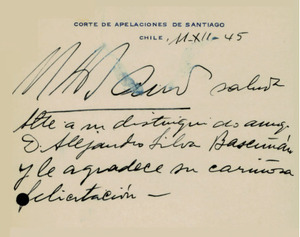 CORTE DE APELACIONES DE SANTIAGO
CHILE, 11-XII-45
saluda
Atte a su distinguido amigo
D. Alejandro Silva Bascuñán
y le agradece su cariñosa
felicitación —